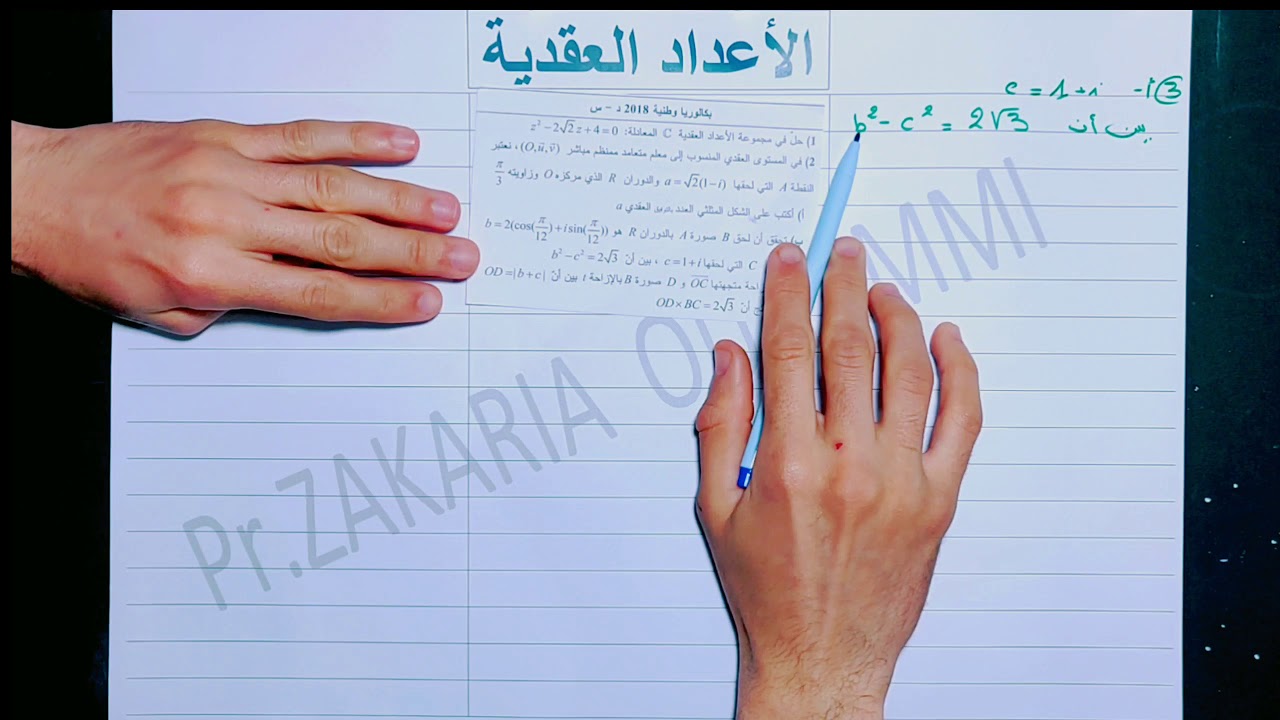 الأعداد العقدية
بكالوريا وطنية 2018 د – س
1) حلّ في مجموعة الأعداد العقدية C المعادلة: z² − 2√2 z + 4 = 0
2) في المستوى العقدي المنسوب إلى معلم متعامد ممنظم مباشر (O, u, v)، نعتبر
النقطة A التي لحقها a = √2(1−i) والدوران R الذي مركزه O وزاويته π/3
أ) أكتب على الشكل المثلثي العدد العقدي a
ب) تحقق أن لحق B صورة A بالدوران R هو b = 2(cos(π/12) + i sin(π/12))
C التي لحقها c = 1 + i ، بين أنّ b² − c² = 2√3
متجهتها OC و D صورة B بالإزاحة t بين أنّ OD = |b + c|
أنّ OD × BC = 2√3
3) أ- c = 1 + i
بين أن b² − c² = 2√3
Pr.ZAKARIA